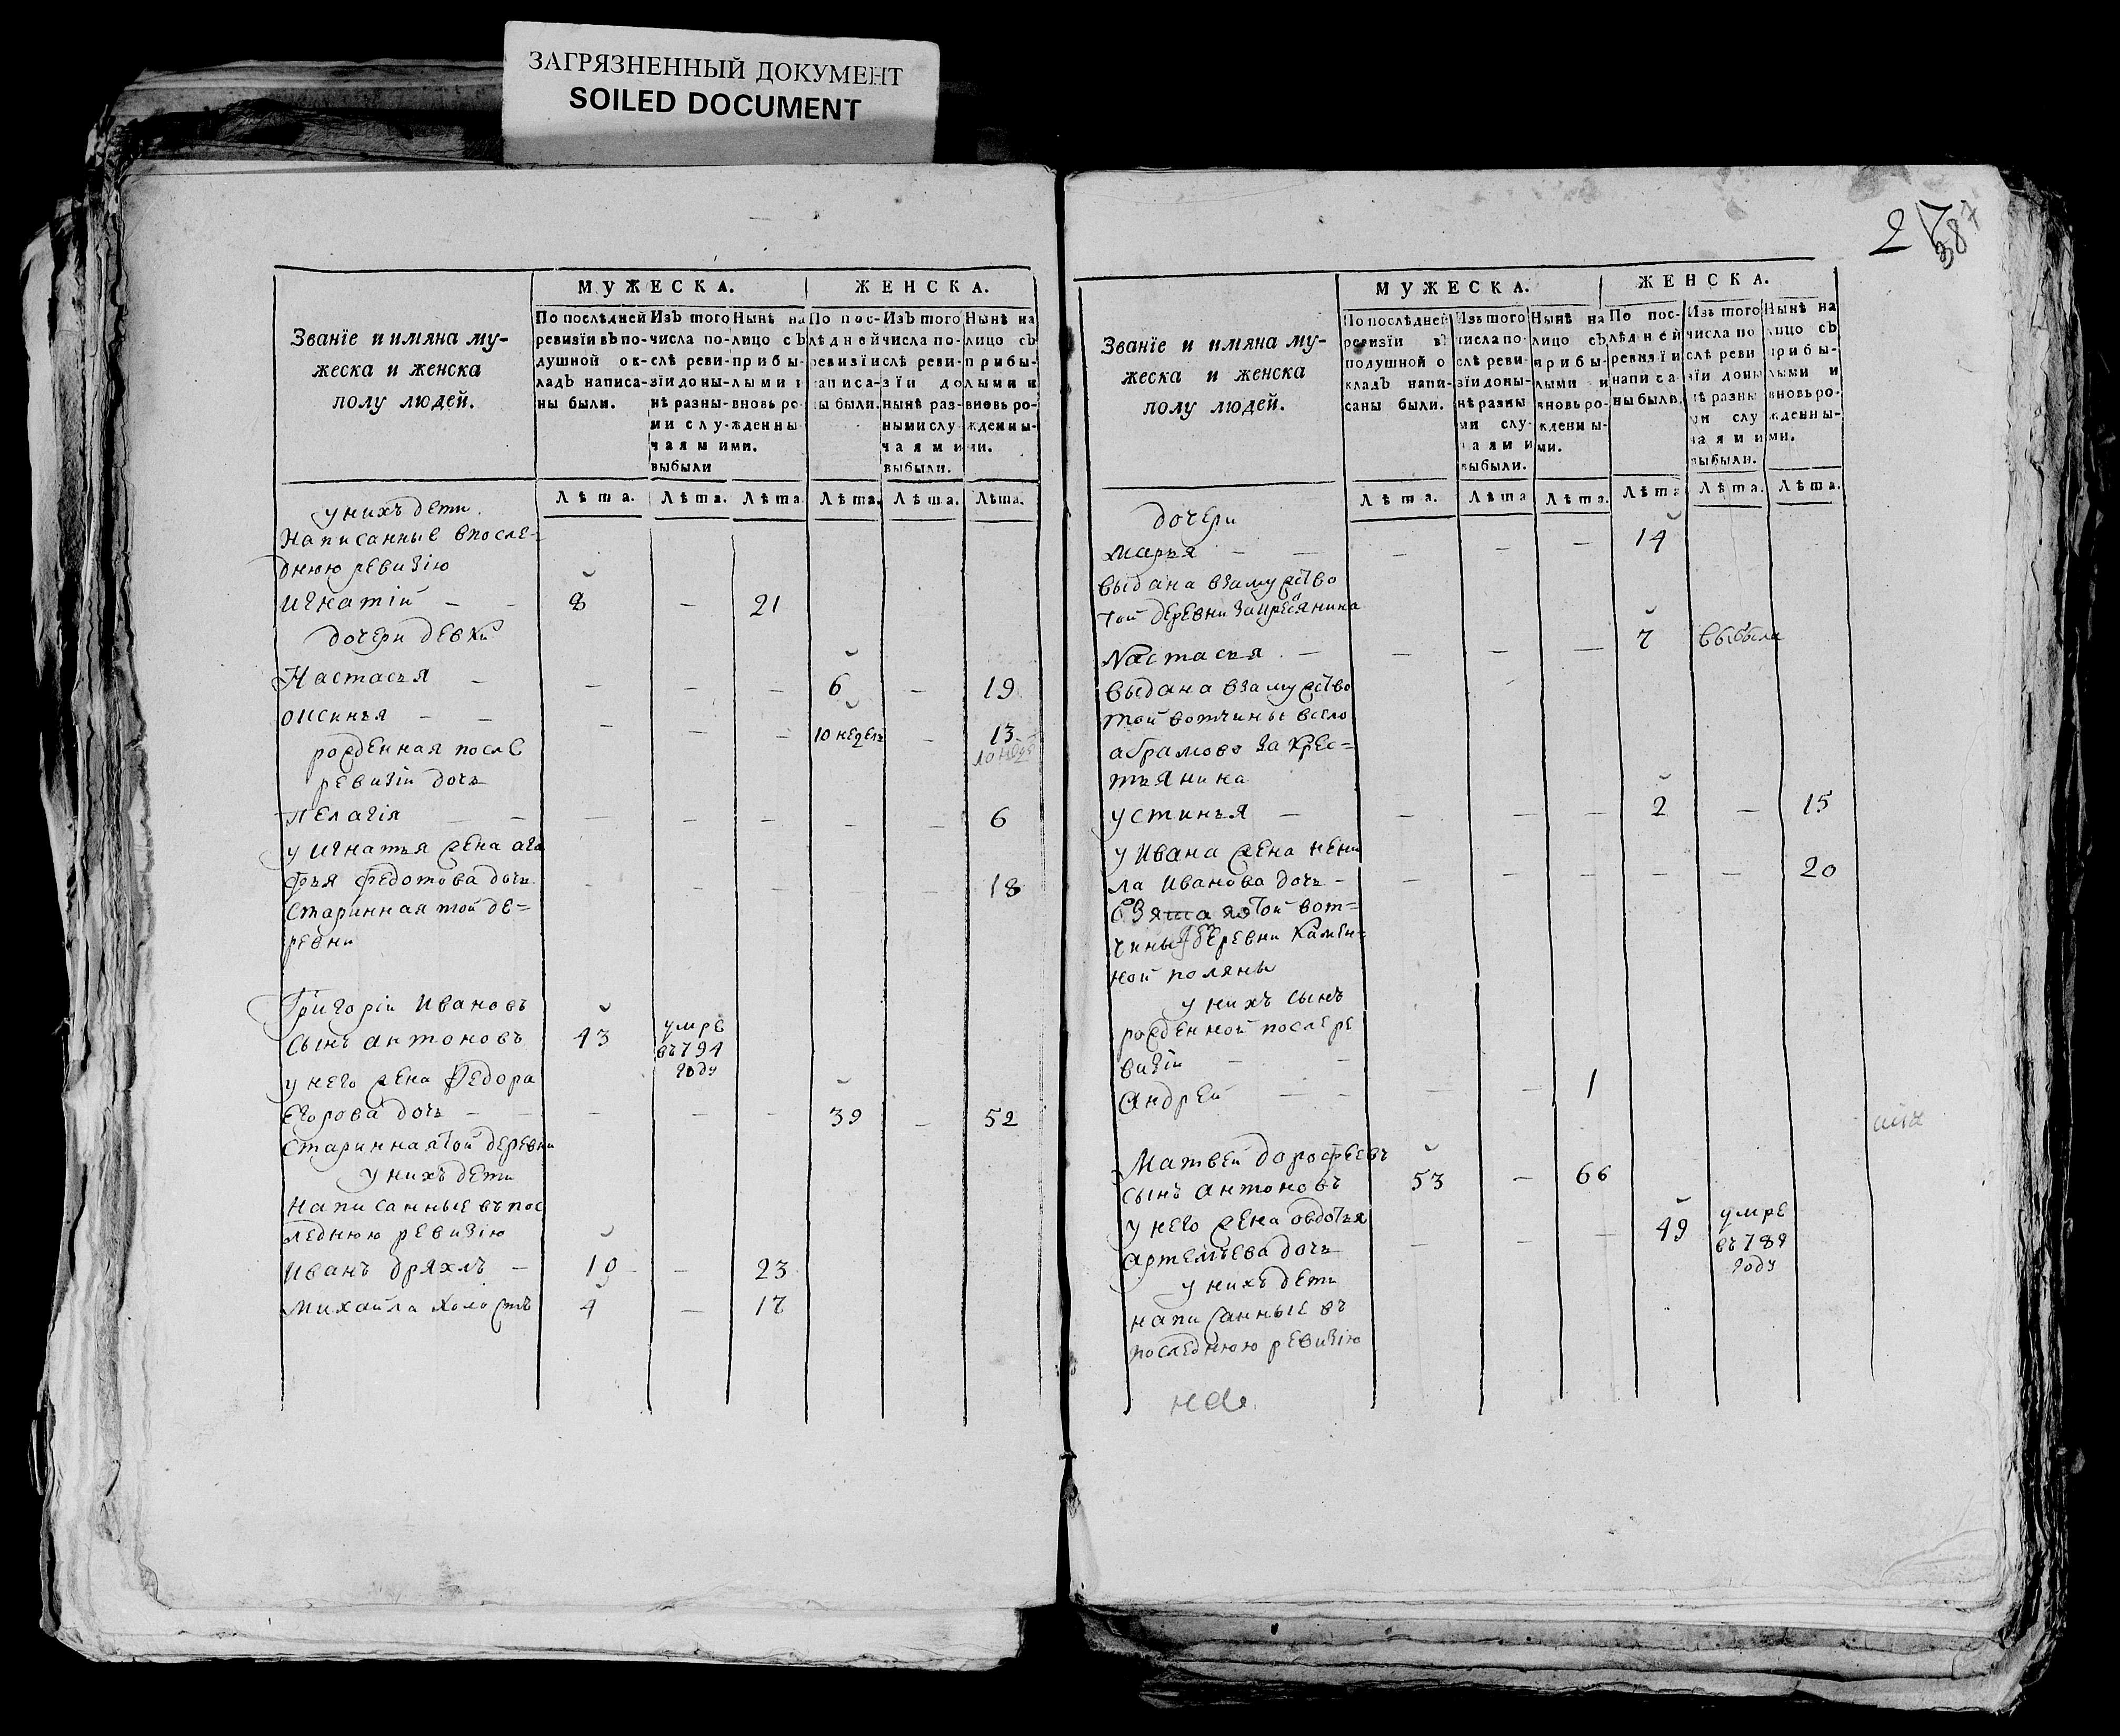 ЗАГРЯЗНЕННЫЙ ДОКУМЕНТ
SOILED DOCUMENT
Званїе и имяна му-
жеска и женска
полу людей.
МУЖЕСКА.
ЖЕНСКА.
По послѣдней
ревизїи въ по-
душной ок-
ладъ написа-
ны были.
Изъ того
числа по-
слѣ реви-
зїи доны-
нѣ разны-
ми слу-
чаями
выбыли
Нынѣ на
лицо съ
прибы-
лыми и
вновь ро-
жденны
ми.
По пос-
лѣдней
ревизїи
написа-
ны были.
Изъ того
числа по-
слѣ реви-
зїи до
нынѣ раз-
ными слу
чаями
выбыли.
Нынѣ на
лицо съ
прибы-
лыми и
вновь ро-
жденны-
ми.
Лѣта. Лѣта. Лѣта Лѣта. Лѣта. Лѣта.
у нихъ дети
Написанные впосле-
днюю ревизїю
Игнатїй – 8 – 21
дочери девки
Настасья – – – – 6 – 19
Оксинья – – – – 10 недель – 13
10 неде
рожденная после
ревизїи дочь
Пелагїя – – – – – – 6
у Игнатья жена ага
фья федотова дочь – – – – – 18
Старинная той де=
ревни
Григорїй Ивановъ
сынъ антоновъ 43 умре
въ 794
году
у него жена Федора
Егорова дочь – – – – 39 – 52
Старинная той деревни
у нихъ дети
Написанные въ пос
леднюю ревизїю
Иванъ дряхлъ – 10 – 23
Михайла холостъ 4 – 17
27
387
Званїе и имяна му-
жеска и женска
полу людей.
МУЖЕСКА.
ЖЕНСКА.
По послѣдней
ревизїи въ
подушной о
кладъ напи-
саны были.
Изъ того
числа по-
слѣ реви-
зїи доны-
нѣ разны
ми слу-
чаями
выбыли.
Нынѣ на
лицо съ
прибы-
лыми и
вновь ро-
жденны-
ми.
По пос-
лѣдней
ревизїи
написа-
ны были.
Изъ того
числа по
слѣ реви
зїи доны
нѣ разны
ми слу
чаями
выбыли.
Нынѣ на
лицо съ
прибы-
лыми и
вновь ро-
жденны-
ми.
Лѣта. Лѣта Лѣта. Лѣта Лѣта. Лѣта.
дочери
марья – – – – – 14
выдана взамужство
той деревни за крестьянина
Настасья – – – – 7 выбыла
выдана взамужство
той вотчины всело
абрамово за крес=
тьянина
устинья – – – – 2 – 15
у Ивана жена нени
ла Иванова дочь – – – – – – 20
Взята той вот=
чины деревни Камен=
ной поляны
у нихъ сынъ
рожденной после ре
визїи – –
Андрей – – – – 1
Матвей дорофеевъ
сынъ антоновъ 53 – 66
у него жена овдотья
артемьева дочь – – – 49 умре
въ 789
году
у нихъ дети
написанные въ
последнюю ревизїю